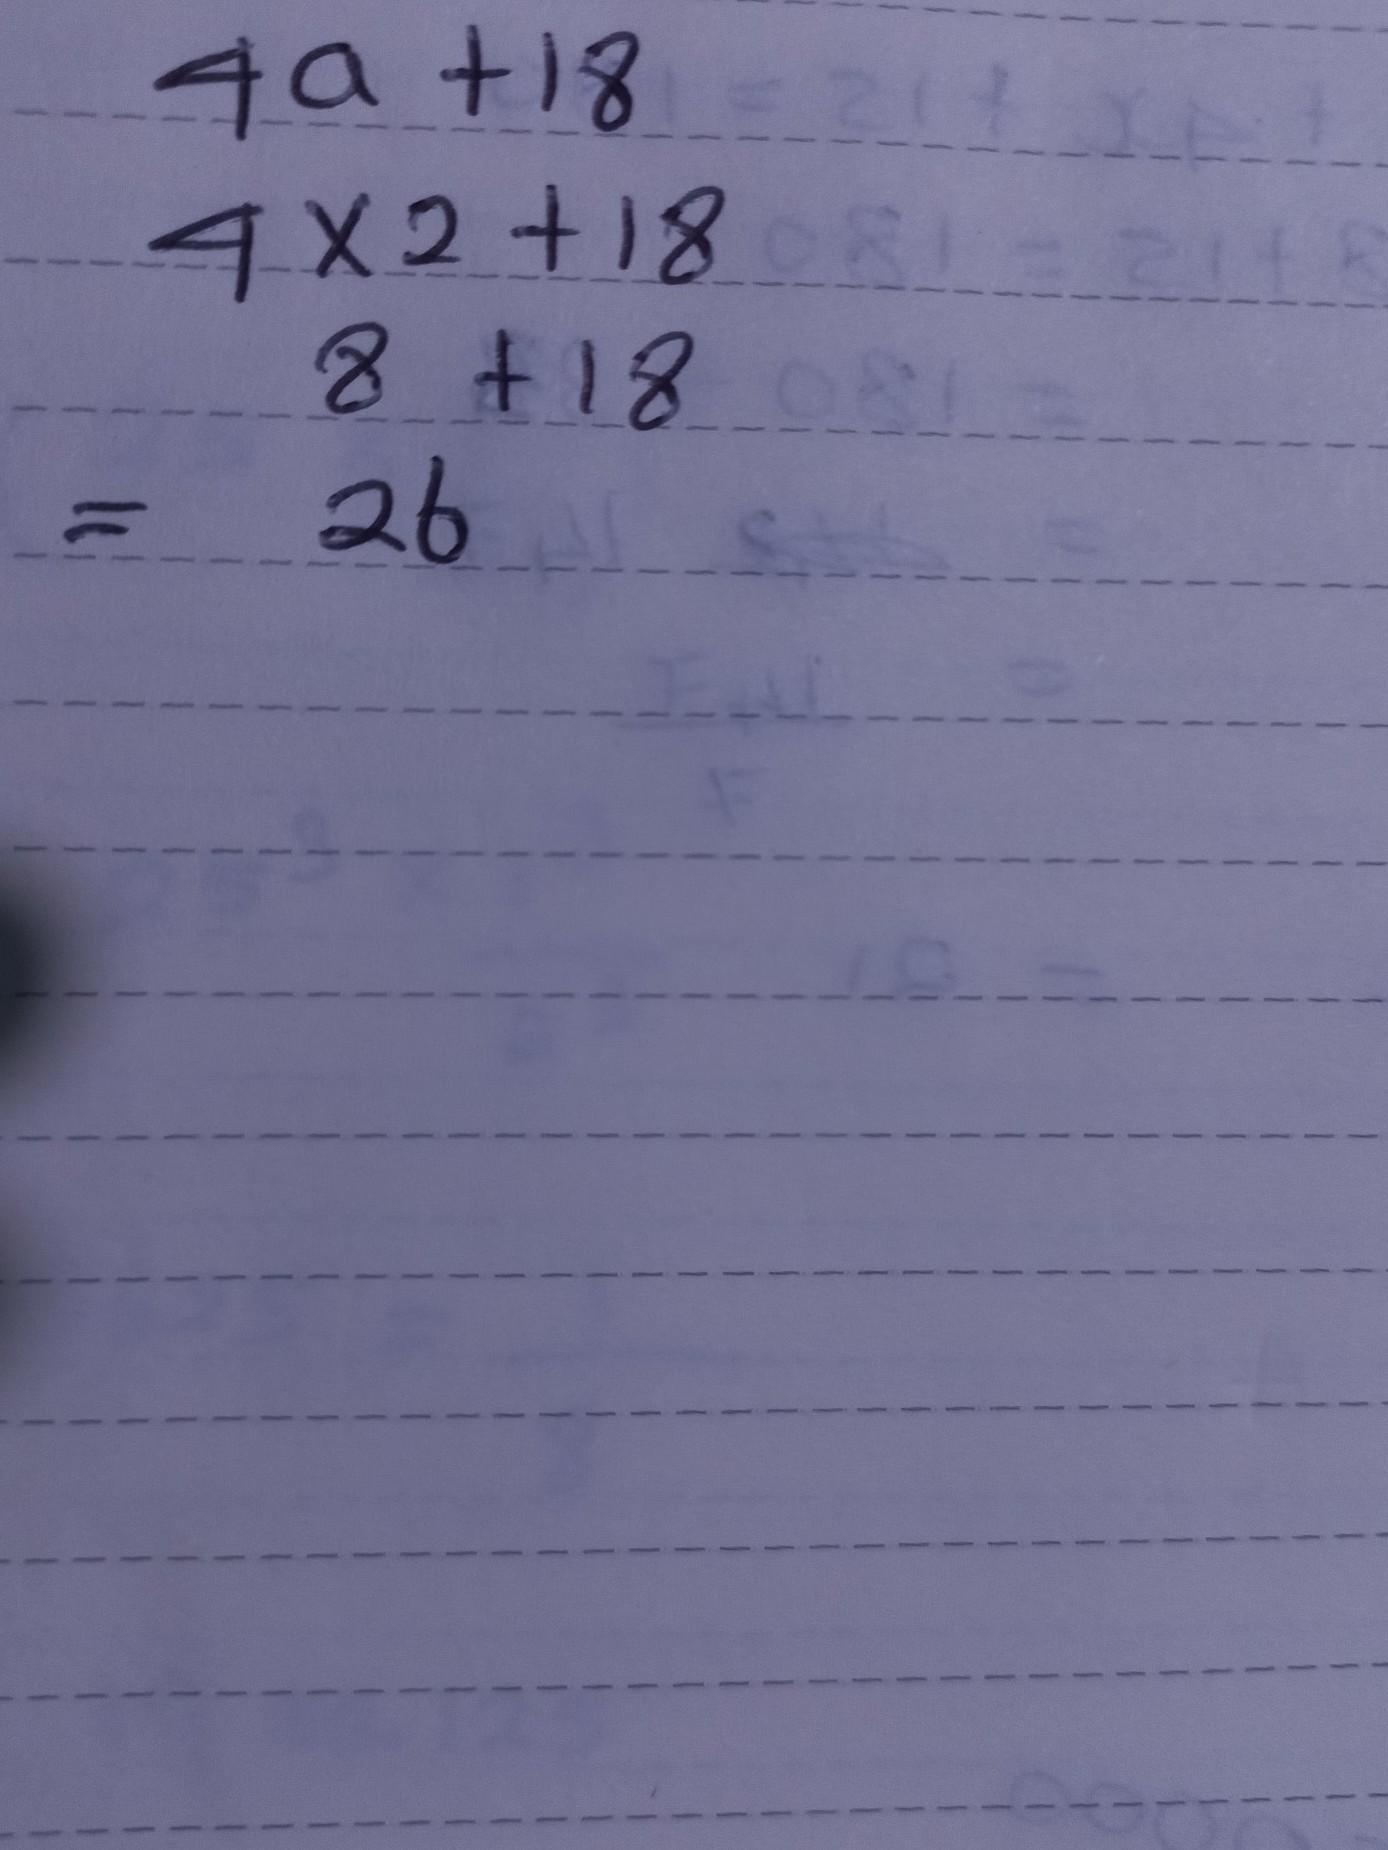 4a +18
4 x 2 +18
8 +18
= 26